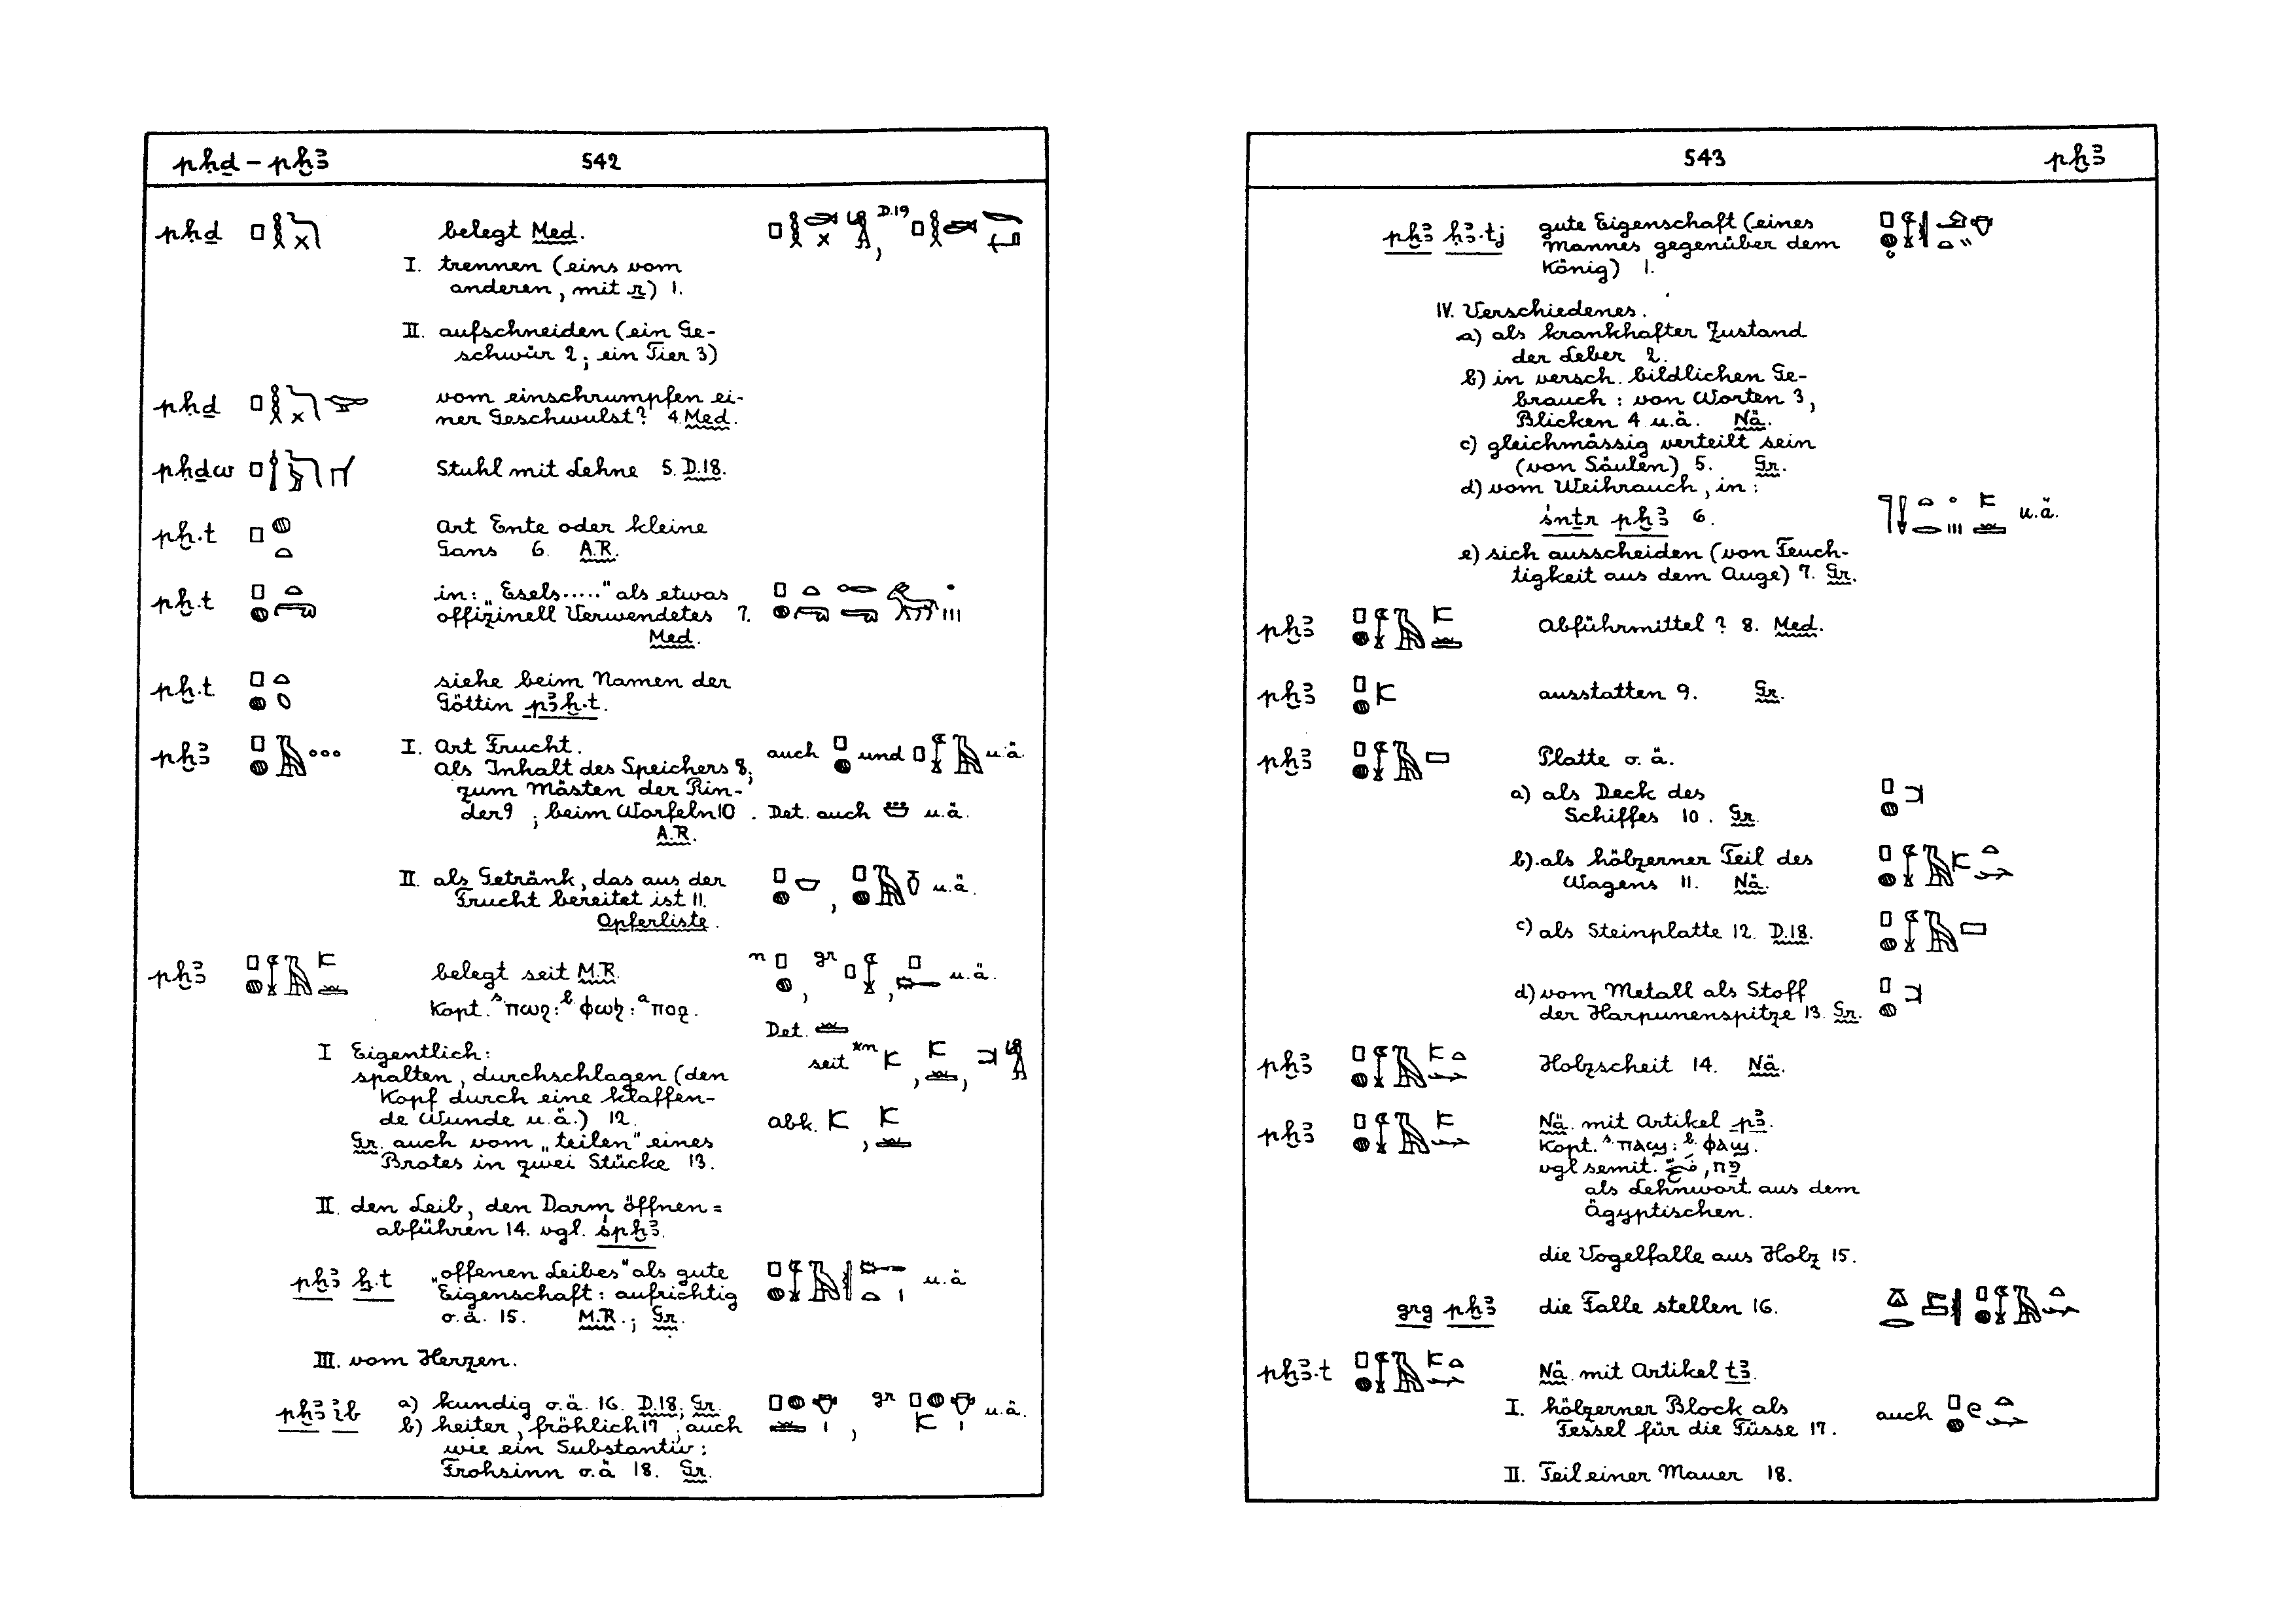 pḥḏ – pḫꜣ 542
pḥḏ belegt Med. D.19
I. trennen (eins vom
anderen, mit r) 1.
II. aufschneiden (ein Ge-
schwür 2; ein Tier 3)
pḥḏ vom einschrumpfen ei-
ner Geschwulst? 4. Med.
pḥḏw Stuhl mit Lehne 5. D.18.
pḫ.t Art Ente oder kleine
Gans 6. A.R.
pḫ.t in: „Esels....." als etwas
offizinell Verwendetes 7.
Med.
pḫ.t siehe beim Namen der
Göttin pꜣḫ.t.
pḫꜣ I. Art Frucht. auch und u.ä.
Als Inhalt des Speichers 8;
zum Mästen der Rin-
der 9; beim Worfeln 10. Det. auch u.ä.
A.R.
II. als Getränk, das aus der , u.ä.
Frucht bereitet ist 11.
Opferliste.
pḫꜣ belegt seit M.R. n , gr , u.ä.
Kopt. s. πωϩ: b. ϕωϧ: a πoϩ.
Det.
I Eigentlich: seit *n , ,
spalten, durchschlagen (den
Kopf durch eine klaffen-
de Wunde u.ä.) 12. abk. ,
Gr. auch vom „teilen" eines
Brotes in zwei Stücke 13.
II. den Leib, den Darm öffnen =
abführen 14. vgl. śpḫꜣ.
pḫꜣ ẖ.t „offenen Leibes" als gute u.ä
Eigenschaft: aufrichtig
o.ä. 15. M.R.; Gr.
III. vom Herzen.
pḫꜣ ỉb a) kundig o.ä. 16. D.18; Gr. , gr u.ä.
b) heiter, fröhlich 17; auch
wie ein Substantiv:
Frohsinn o.ä 18. Gr.
543 pḫꜣ
pḫꜣ ḥꜣ.tj gute Eigenschaft (eines
Mannes gegenüber dem
König) 1.
IV. Verschiedenes.
a) als krankhafter Zustand
der Leber 2.
b) in versch. bildlichen Ge-
brauch: von Worten 3,
Blicken 4 u.ä. Nä.
c) gleichmässig verteilt sein
(von Säulen) 5. Gr.
d) vom Weihrauch, in:
śnṯr pḫꜣ 6. u.ä.
e) sich ausscheiden (von Feuch-
tigkeit aus dem Auge) 7. Gr.
pḫꜣ Abführmittel? 8. Med.
pḫꜣ ausstatten 9. Gr.
pḫꜣ Platte o.ä.
a) als Deck des
Schiffes 10. Gr.
b) als hölzerner Teil des
Wagens 11. Nä.
c) als Steinplatte 12. D.18.
d) vom Metall als Stoff
der Harpunenspitze 13. Gr.
pḫꜣ Holzscheit 14. Nä.
pḫꜣ Nä. mit Artikel pꜣ.
Kopt. s. πⲁϣ: b. ϕⲁϣ.
vgl semit. فخّ, פח
als Lehnwort aus dem
Ägyptischen.
die Vogelfalle aus Holz 15.
grg pḫꜣ die Falle stellen 16.
pḫꜣ.t Nä. mit Artikel tꜣ.
I. hölzerner Block als auch
Fessel für die Füsse 17.
II. Teil einer Mauer 18.